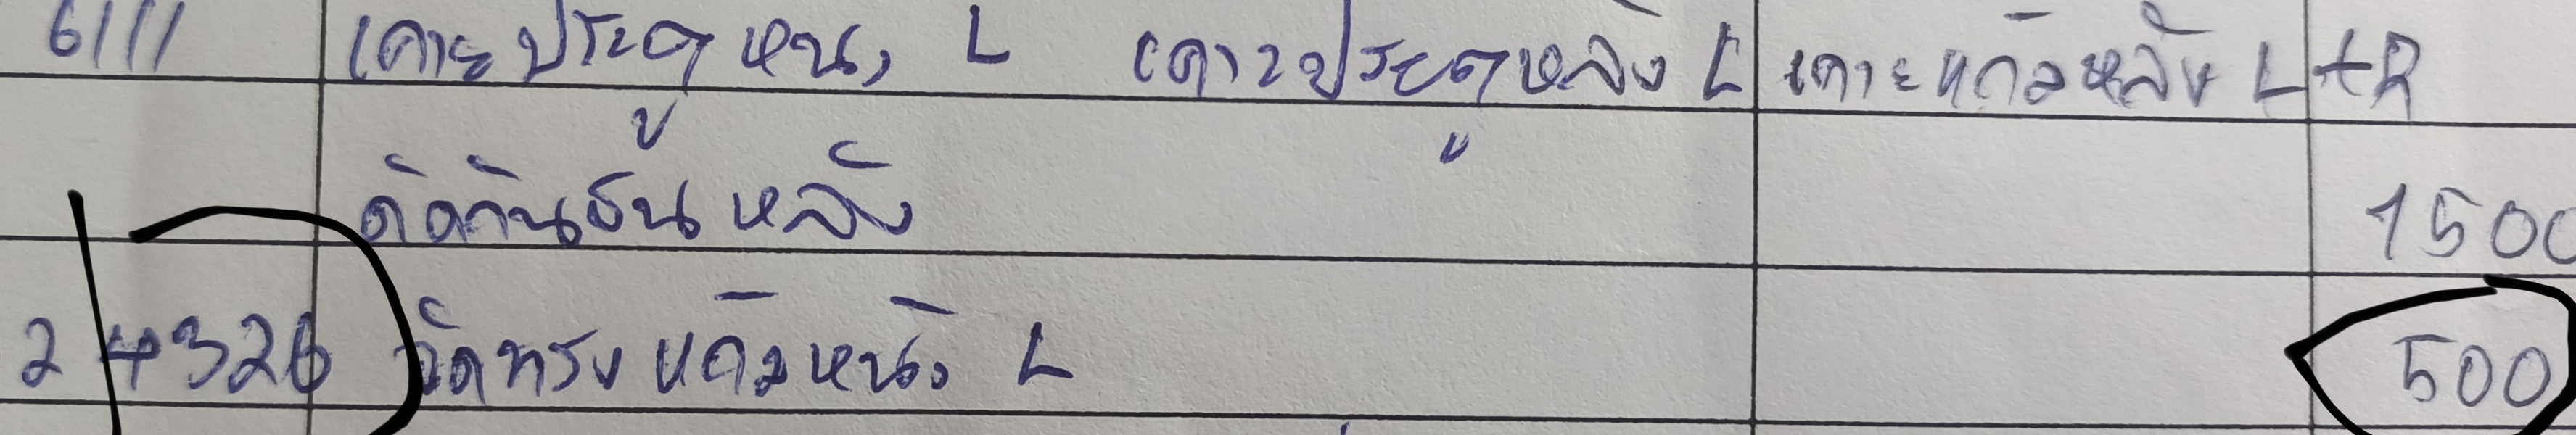 6111 เคาะประตูหน้า L เคาะประตูหลัง L เคาะแก้มหลัง L+R
ดัดกันชนหลัง 1500
24326 จัดทรงแก้มหน้า L 500